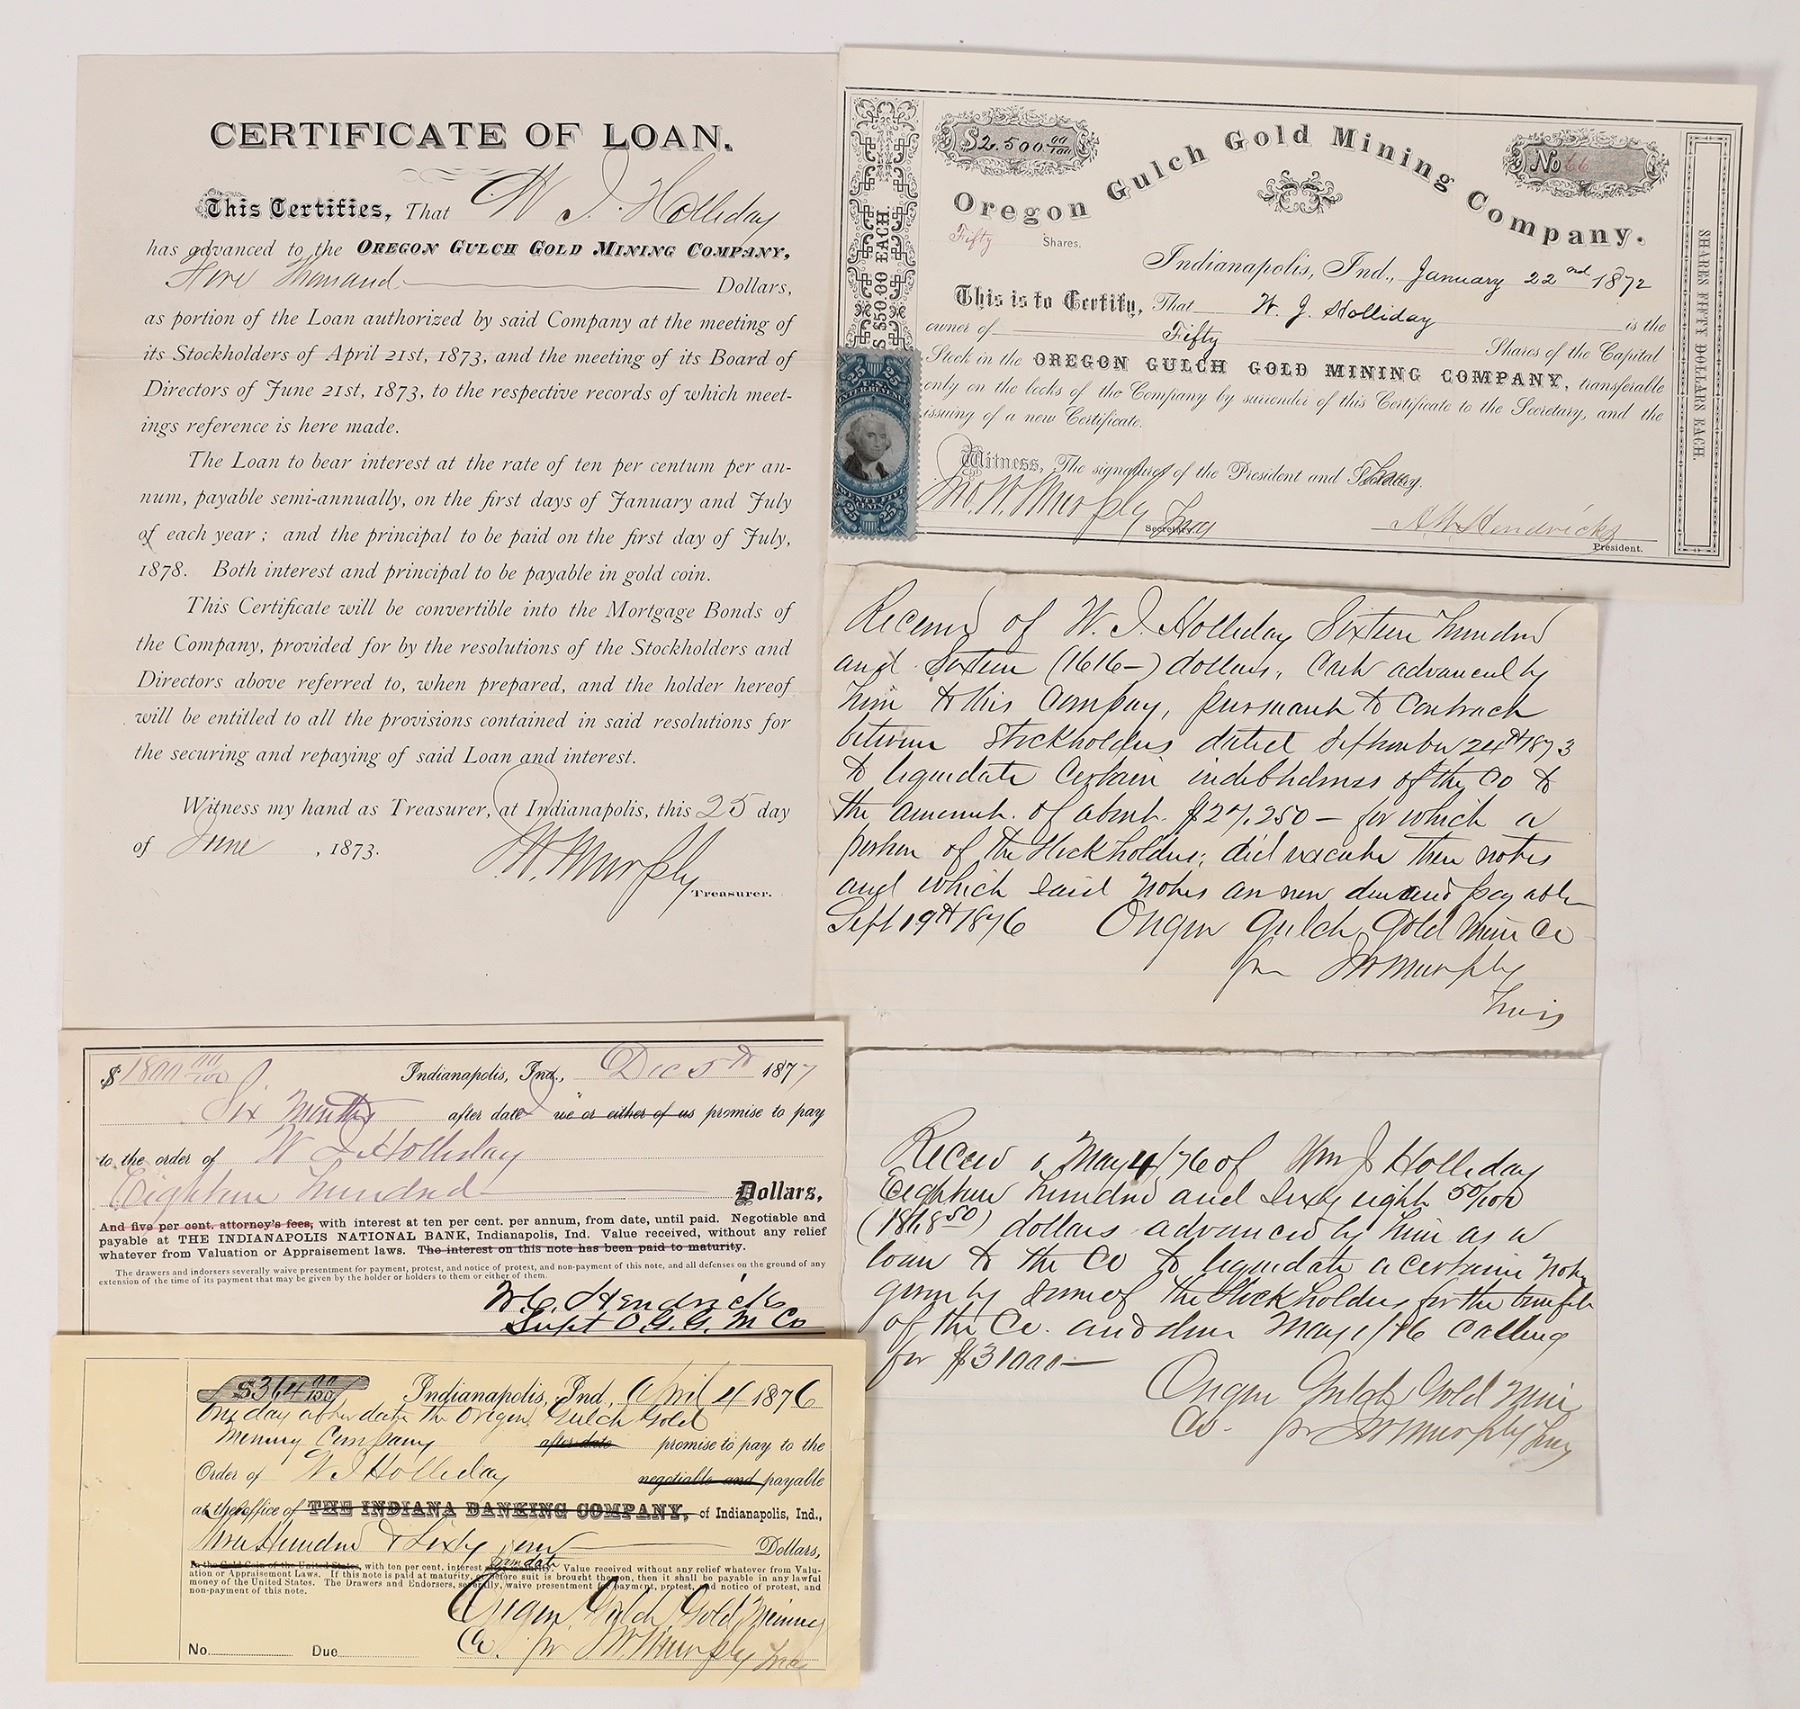 CERTIFICATE OF LOAN.
This Certifies, That W J. Holliday
has advanced to the OREGON GULCH GOLD MINING COMPANY,
Thousand Dollars,
as portion of the Loan authorized by said Company at the meeting of
its Stockholders of April 21st, 1873, and the meeting of its Board of
Directors of June 21st, 1873, to the respective records of which meet-
ings reference is here made.
The Loan to bear interest at the rate of ten per centum per an-
num, payable semi-annually, on the first days of January and July
of each year; and the principal to be paid on the first day of July,
1878. Both interest and principal to be payable in gold coin.
This Certificate will be convertible into the Mortgage Bonds of
the Company, provided for by the resolutions of the Stockholders and
Directors above referred to, when prepared, and the holder hereof
will be entitled to all the provisions contained in said resolutions for
the securing and repaying of said Loan and interest.
Witness my hand as Treasurer, at Indianapolis, this 25 day
of June, 1873.
J W. Murphy
Treasurer.
$50.00 EACH.
$2,500 00/100
No 66
Oregon Gulch Gold Mining Company.
Fifty Shares,
Indianapolis, Ind., January 22nd 1872
This is to Certify, That W. J. Holliday is the
owner of Fifty Shares of the Capital
Stock in the OREGON GULCH GOLD MINING COMPANY, transferable
only on the books of the Company by surrender of this Certificate to the Secretary, and the
issuing of a new Certificate.
Witness, The signatures of the President and
Jno. W. Murphy Treas
Secretary.
A W Hendricks
President.
SHARES FIFTY DOLLARS EACH.
25 25
25 25
Received of W. J. Holliday Sixteen hundred
and Sixteen (1616–) dollars, Cash advanced by
him to this Company, pursuant to Contract
between Stockholders dated September 24th 1873
to liquidate Certain indebtedness of the Co to
the amount of about $27,250 – for which a
portion of the Stockholders, did execute their notes
and which said notes are now due and payable
Sept 19th 1876 Oregon Gulch Gold Mine Co
per J W Murphy
Treas
$1800 00/100 Indianapolis, Ind., Dec 5th 1877
Six Months after date I we or either of us promise to pay
to the order of W J Holliday
Eighteen hundred Dollars,
And five per cent. attorney's fees, with interest at ten per cent. per annum, from date, until paid. Negotiable and
payable at THE INDIANAPOLIS NATIONAL BANK, Indianapolis, Ind. Value received, without any relief
whatever from Valuation or Appraisement laws. The interest on this note has been paid to maturity.
The drawers and indorsers severally waive presentment for payment, protest, and notice of protest, and non-payment of this note, and all defenses on the ground of any
extension of the time of its payment that may be given by the holder or holders to them or either of them.
Hendricks
Supt O.G.G. M Co
Received May 4/76 of Wm J Holliday
Eighteen hundred and sixty eight 50/100
(1868 50) dollars advanced by him as a
loan to the Co to liquidate a certain note
given by some of the Stockholders for the benefit
of the Co. and due May 1/76 Calling
for $31000–
Oregon Gulch Gold Mine
Co. pr J W Murphy Treas
$364 00/100 Indianapolis, Ind., April 4 1876
One day after date the Oregon Gulch Gold
Mining Company after date promise to pay to the
Order of W J Holliday negotiable and payable
at the office of THE INDIANA BANKING COMPANY, of Indianapolis, Ind.,
Three Hundred & Sixty four Dollars,
In the Gold Coin of the United States, with ten per cent. interest from date Value received without any relief whatever from Valu-
ation or Appraisement Laws. If this note is paid at maturity, or before suit is brought thereon, then it shall be payable in any lawful
money of the United States. The Drawers and Endorsers, severally, waive presentment for payment, protest, and notice of protest, and
non-payment of this note.
Oregon Gulch Gold Mining
Co. pr J W. Murphy Treas
No. Due